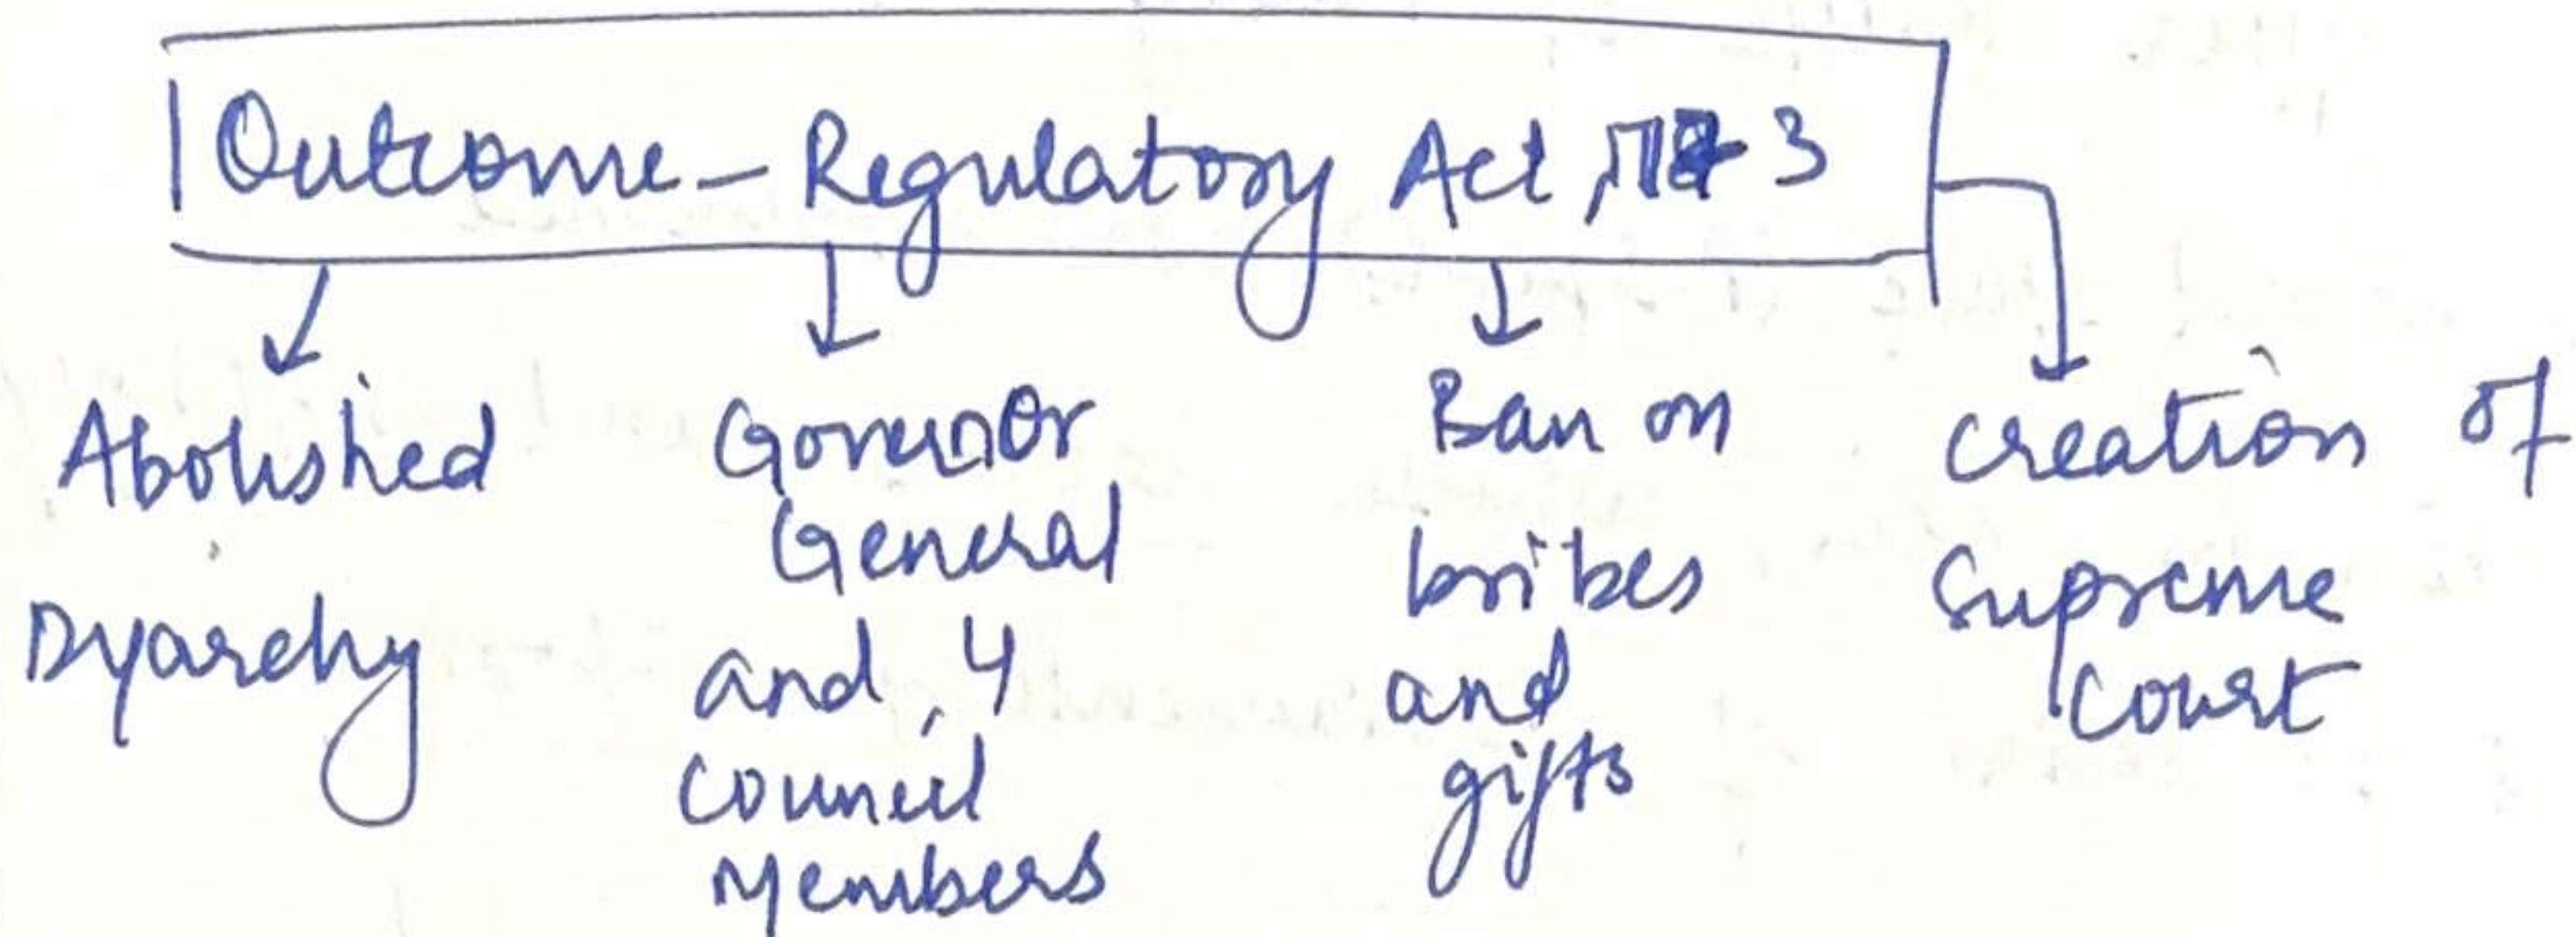 Outcome - Regulatory Act, 1773
Abolished
Dyarchy
Governor
General
and 4
Council
Members
Ban on
bribes
and
gifts
creation of
Supreme
Court